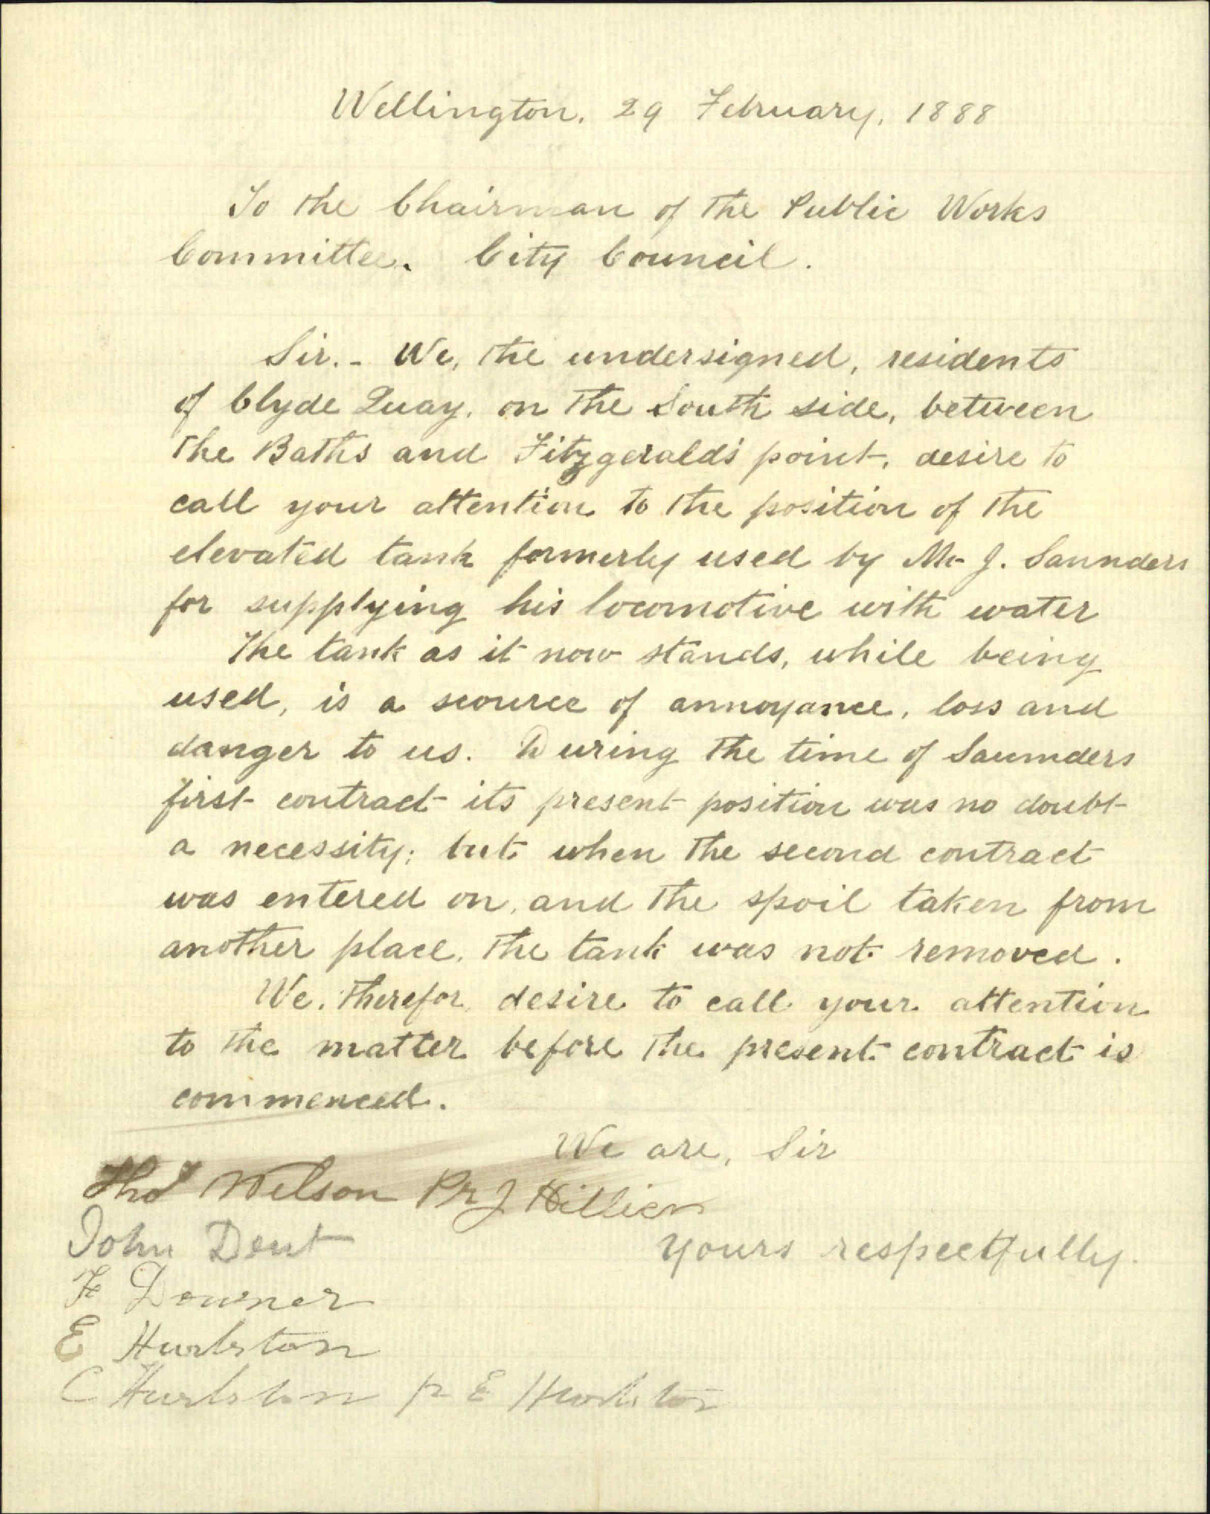 Wellington. 29 February. 1888
To the Chairman of the Public Works
Committee. City Council.
Sir.- We, the undersigned, residents
of Clyde Quay, on the South side, between
the Baths and Fitzgerald's point, desire to
call your attention to the position of the
elevated tank formerly used by Mr J. Saunders
for supplying his locomotive with water
The tank as it now stands, while being
used, is a scource of annoyance, loss and
danger to us. During the time of Saunders
first contract its present position was no doubt
a necessity; but when the second contract
was entered on, and the spoil taken from
another place, the tank was not removed.
We, therefor desire to call your attention
to the matter before the present contract is
commenced.
We are, Sir
Thos Wilson Pr J Hillier
yours respectfully.
John Dent
F Downer
E Hurlston
C Hurlston pr E Hurlston